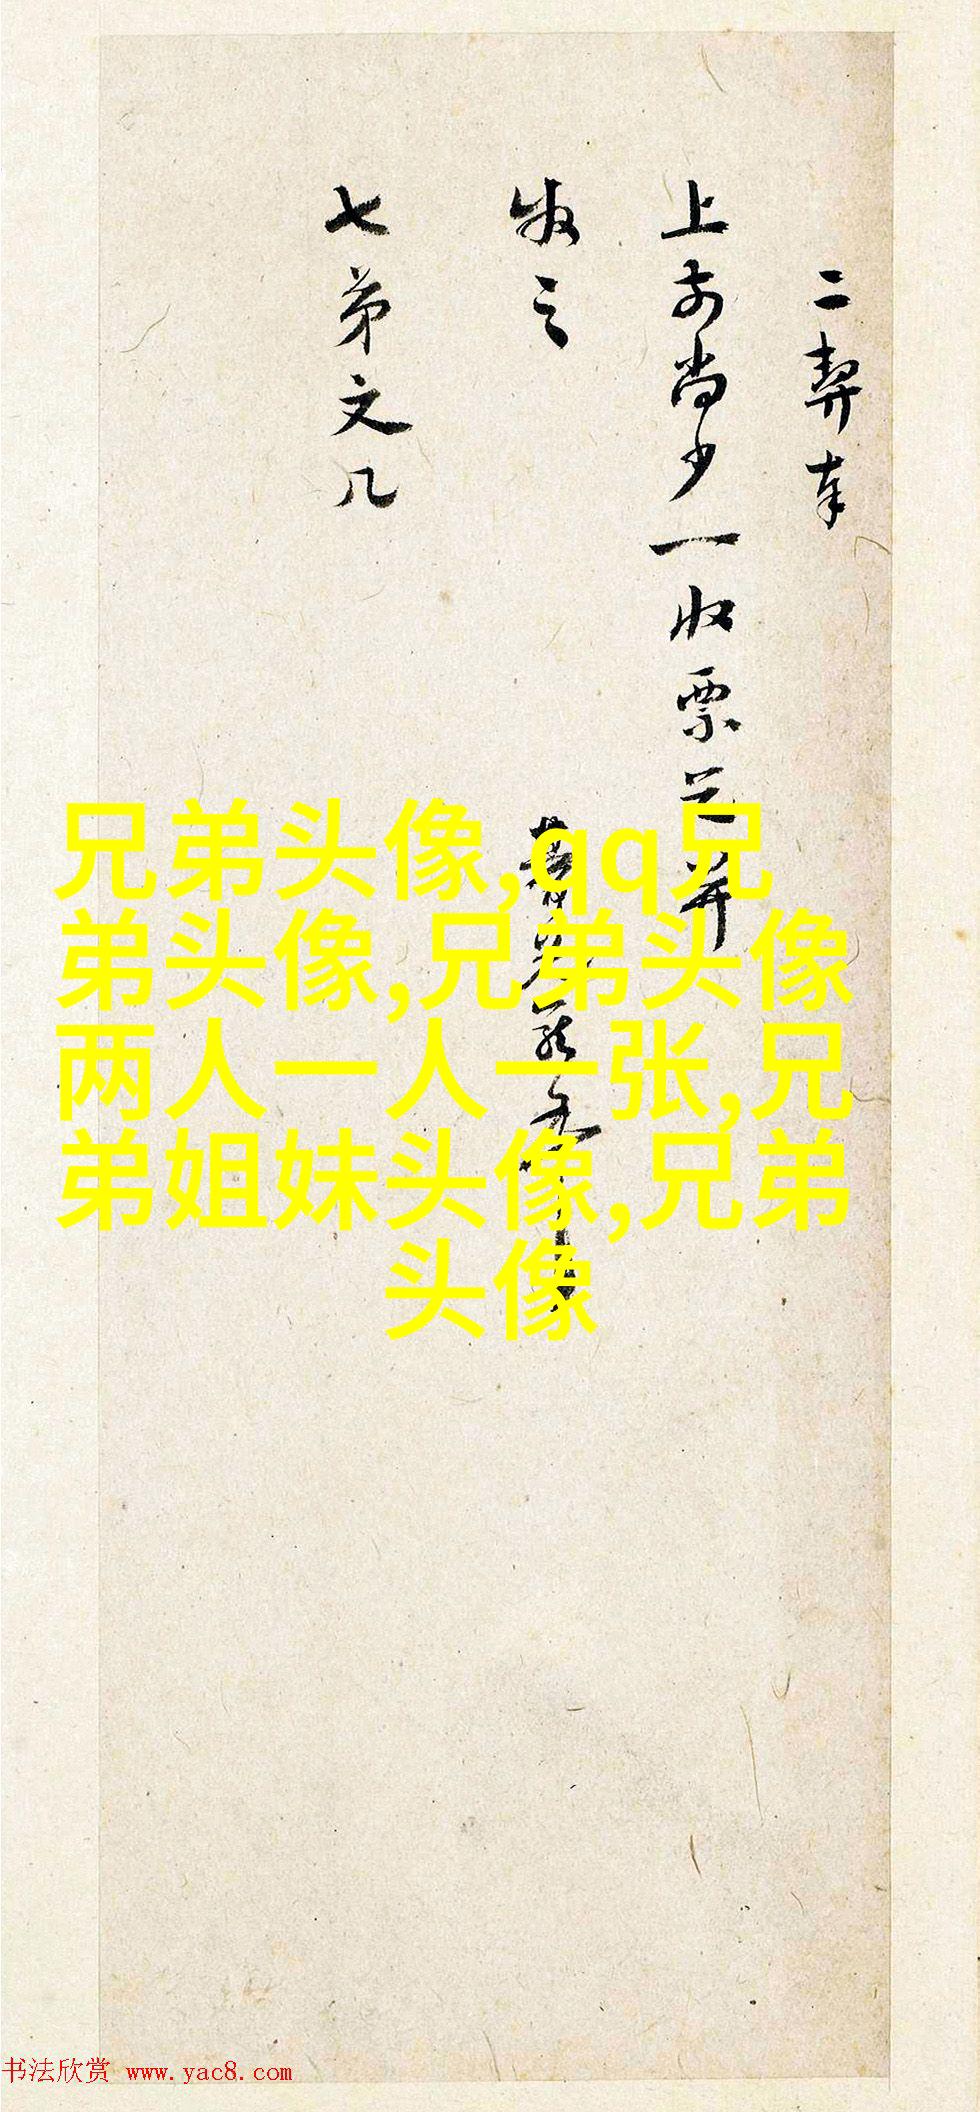 二契奉
上前尚少一收票並并
收之
七弟文几
兄弟头像,qq兄
弟头像,兄弟头像
两人一人一张,兄
弟姐妹头像,兄弟
头像
书法欣赏 www.yac8.com